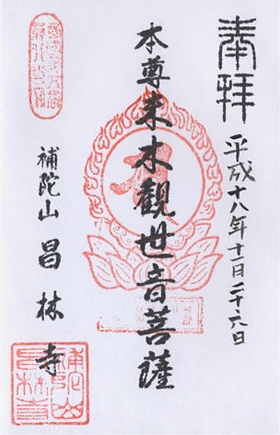 奉拝
平成十八年十一月二十六日
本尊来木観世音菩薩
補陀山 昌林寺